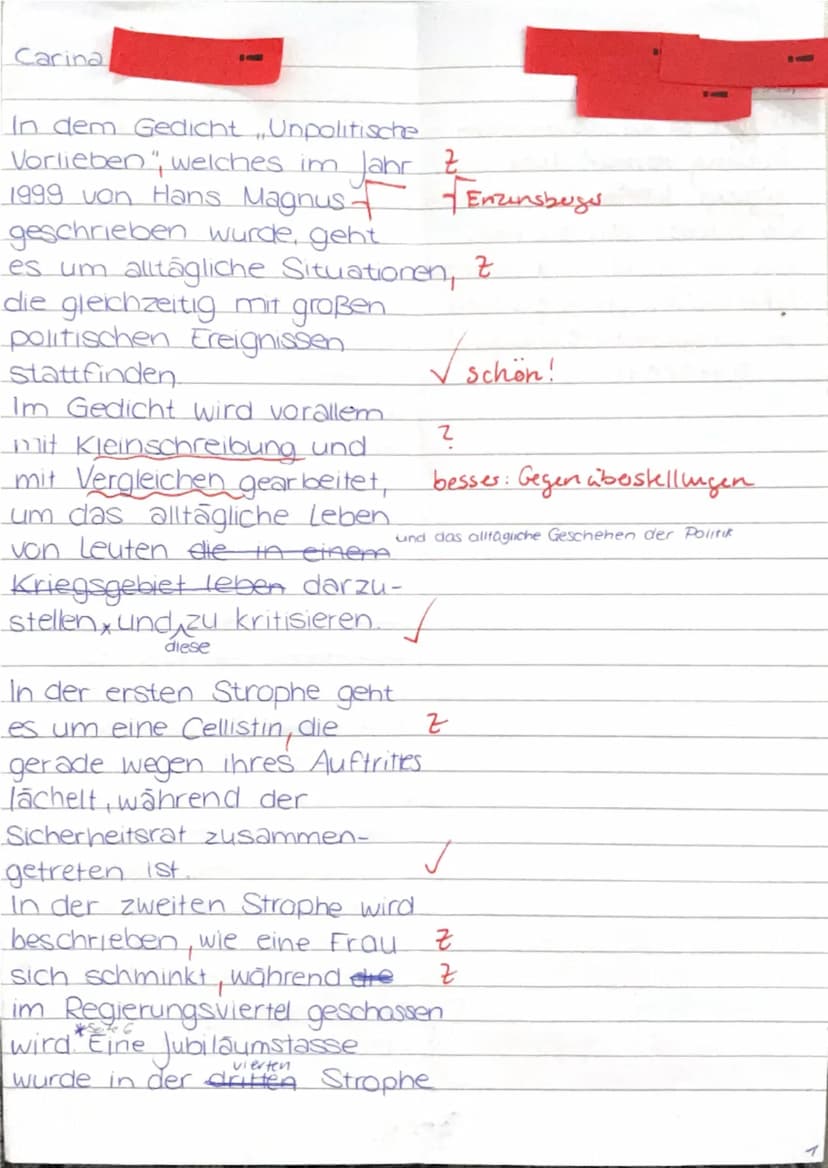 Carina
In dem Gedicht „Unpolitische
Vorlieben", welches im Jahr Z
1999 von Hans Magnus Γ Γ Enzensberger
geschrieben wurde, geht
es um alltägliche Situationen, Z
die gleichzeitig mit großen
politischen Ereignissen
stattfinden. ✓ schön!
Im Gedicht wird vorallem
mit Kleinschreibung und ?
mit Vergleichen gearbeitet, besser: Gegenüberstellungen
um das alltägliche Leben
und das alltägliche Geschehen der Politik
von Leuten die in einem
Kriegsgebiet leben darzu-
stellen, und zu kritisieren. ✓
diese
In der ersten Strophe geht
es um eine Cellistin, die Z
gerade wegen ihres Auftrittes
lächelt, während der
Sicherheitsrat zusammen-
getreten ist. ✓
In der zweiten Strophe wird
beschrieben, wie eine Frau Z
sich schminkt, während die Z
im Regierungsviertel geschossen
*Seite 6
wird. Eine Jubiläumstasse
vierten
wurde in der dritten Strophe
1